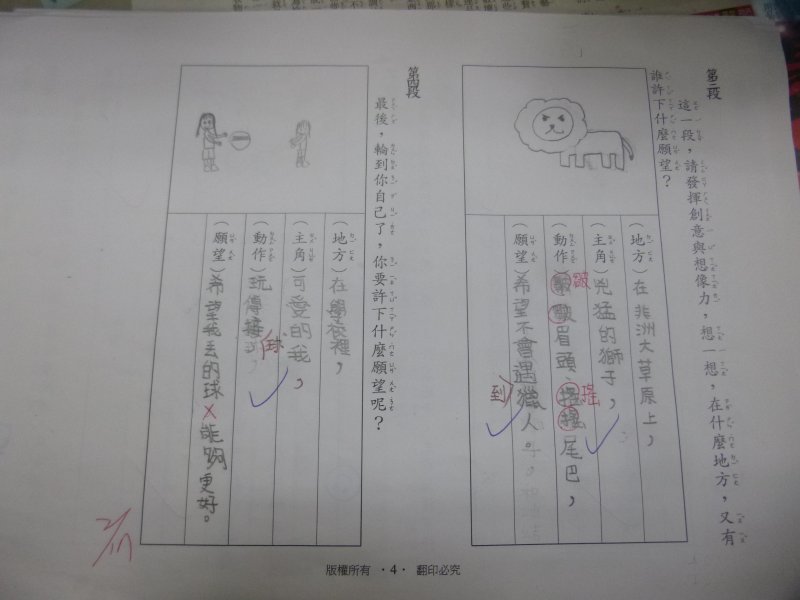 第三段
這一段，請發揮創意與想像力，想一想，在什麼地方，又有
誰許下什麼願望？
（地方）在非洲大草原上，
（主角）兇猛的獅子，
（動作）皺皺眉頭、搖搖尾巴，
皺
搖
（願望）希望不會遇獵人。
到
第四段
最後，輪到你自己了，你要許下什麼願望呢？
（地方）在學校裡，
（主角）可愛的我，
（動作）玩傳接
球
（願望）希望我丟的球能夠更好。
2/17
版權所有 ·4· 翻印必究